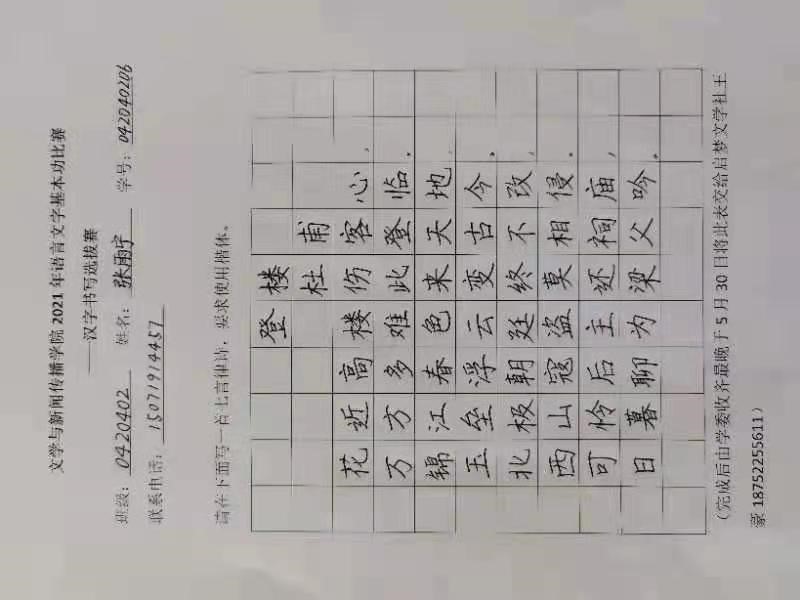 文学与新闻传播学院 2021 年语言文字基本功比赛
——汉字书写选拔赛
班级：0420402 姓名：张雨宁 学号：042040206
联系电话：15071914457
请在下面写一首七言律诗，要求使用楷体。
登楼
杜甫
花近高楼伤客心，
万方多难此登临。
锦江春色来天地，
玉垒浮云变古今。
北极朝廷终不改，
西山寇盗莫相侵。
可怜后主还祠庙，
日暮聊为梁父吟。
（完成后由学委收齐最晚于 5 月 30 日将此表交给启梦文学社王
豪 18752255611）